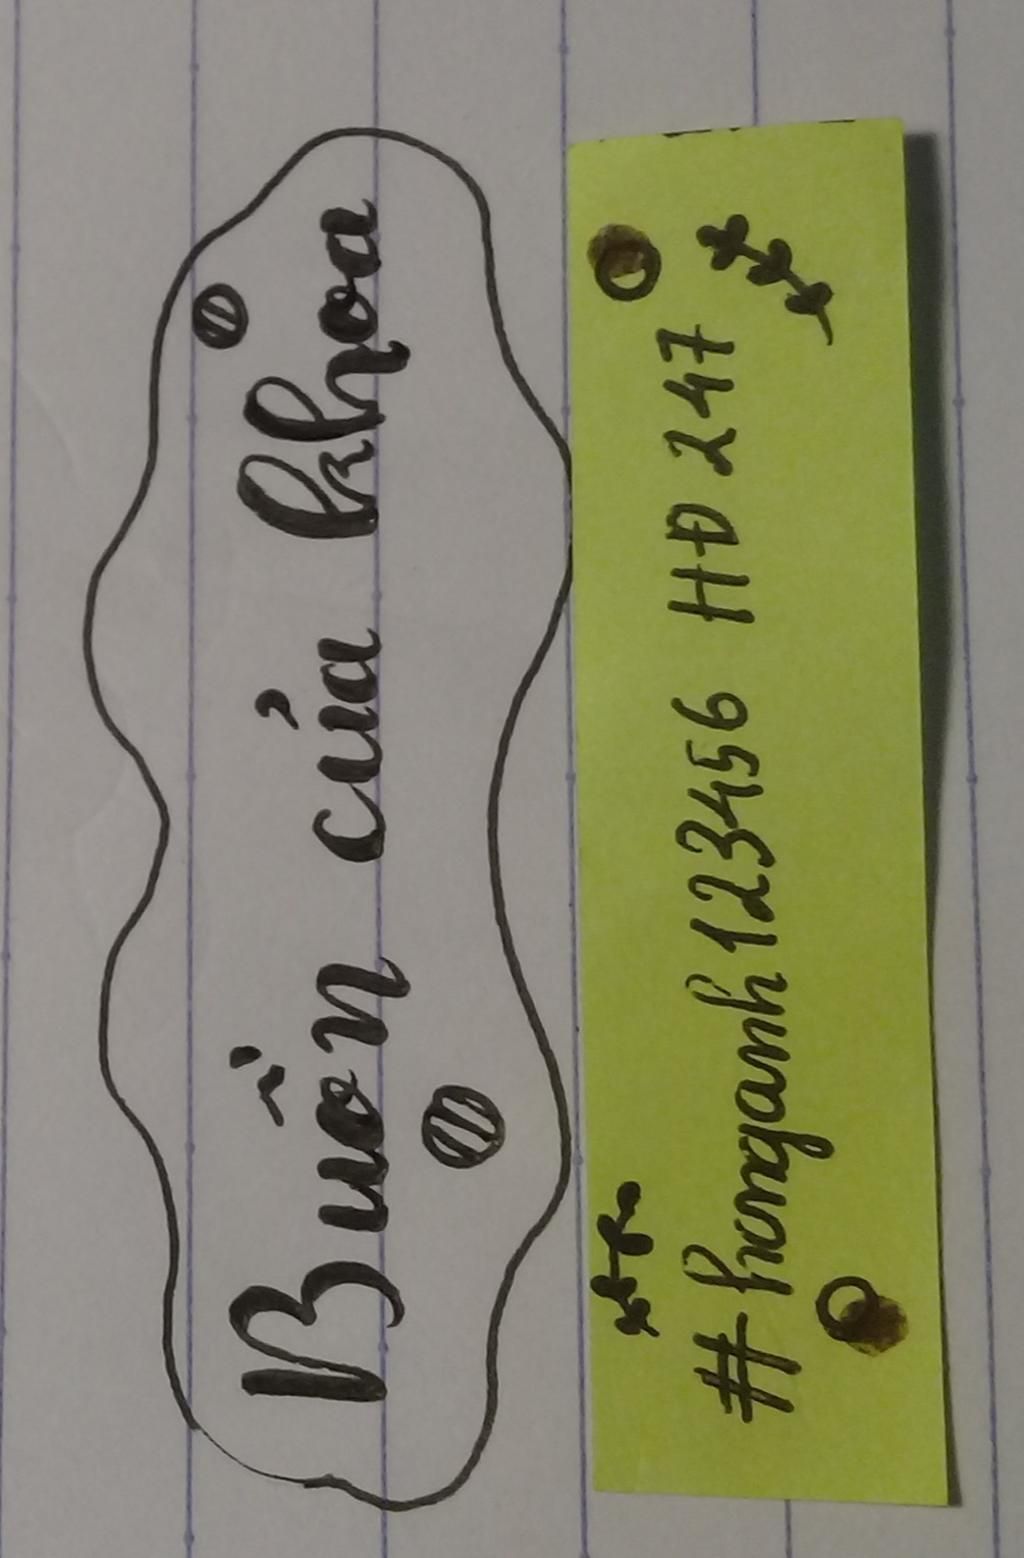 Buồn của khoa
#honganh123456 HĐ 247